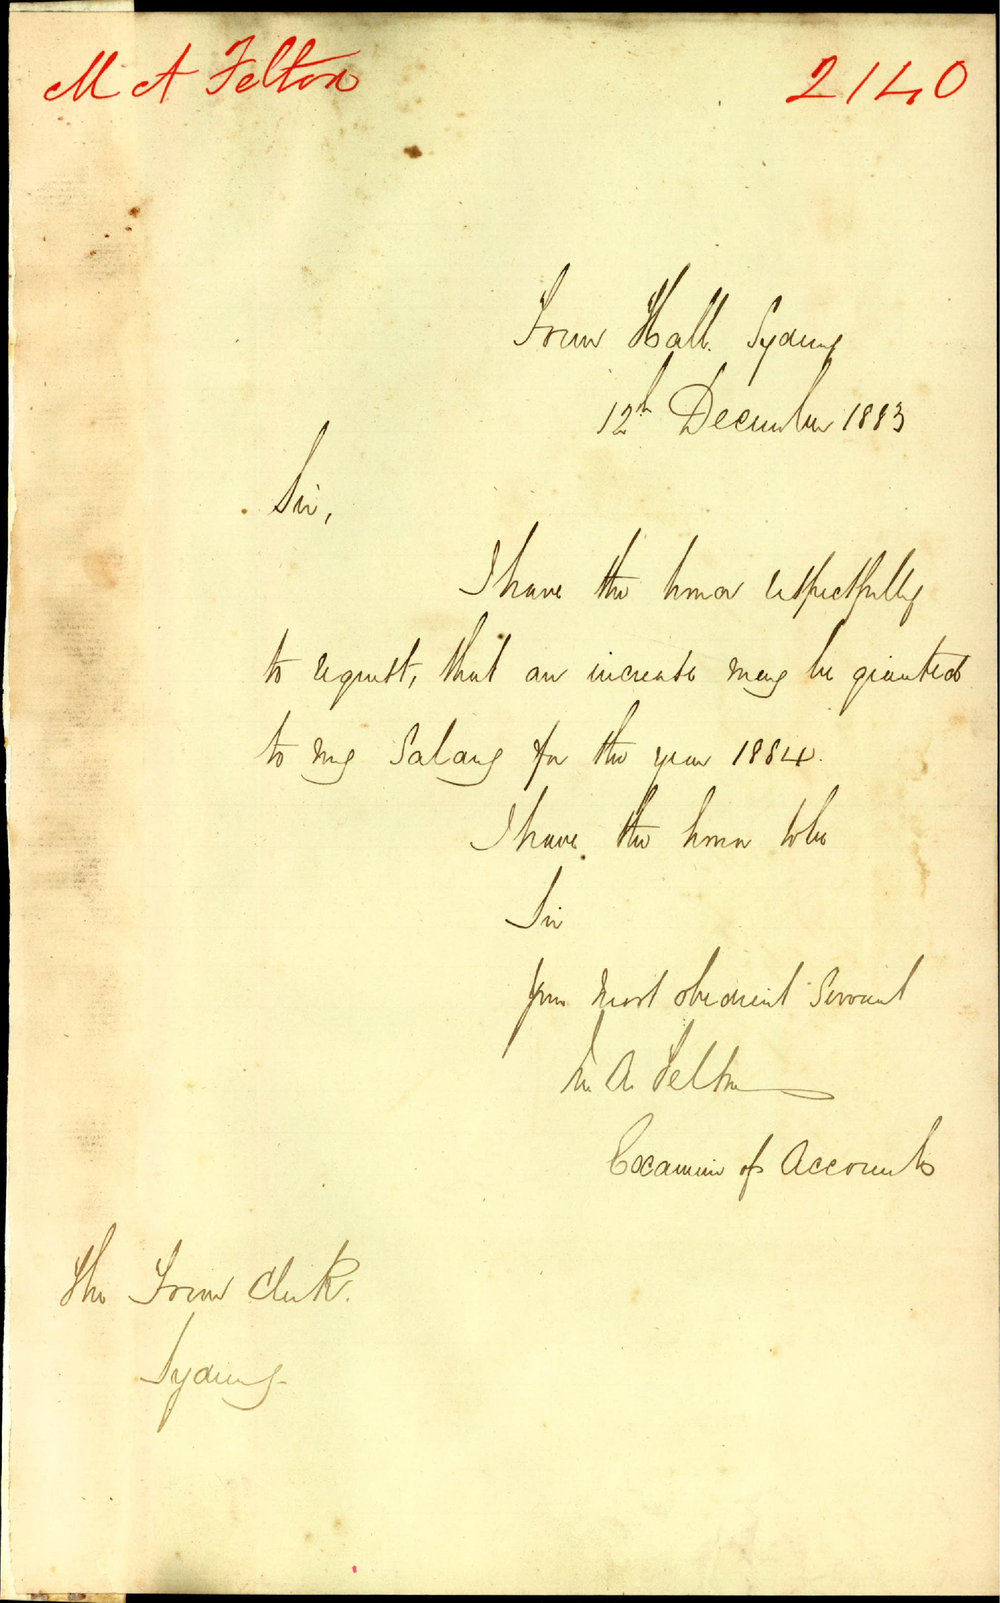 M A Felton 2140
Town Hall. Sydney
12th December 1883
Sir,
I have the honor respectfully
to request, that an increase may be granted
to my Salary for the year 1884.
I have the honor to be
Sir
your most obedient Servant
M. A. Felton
Examiner of Accounts
The Town Clerk.
Sydney